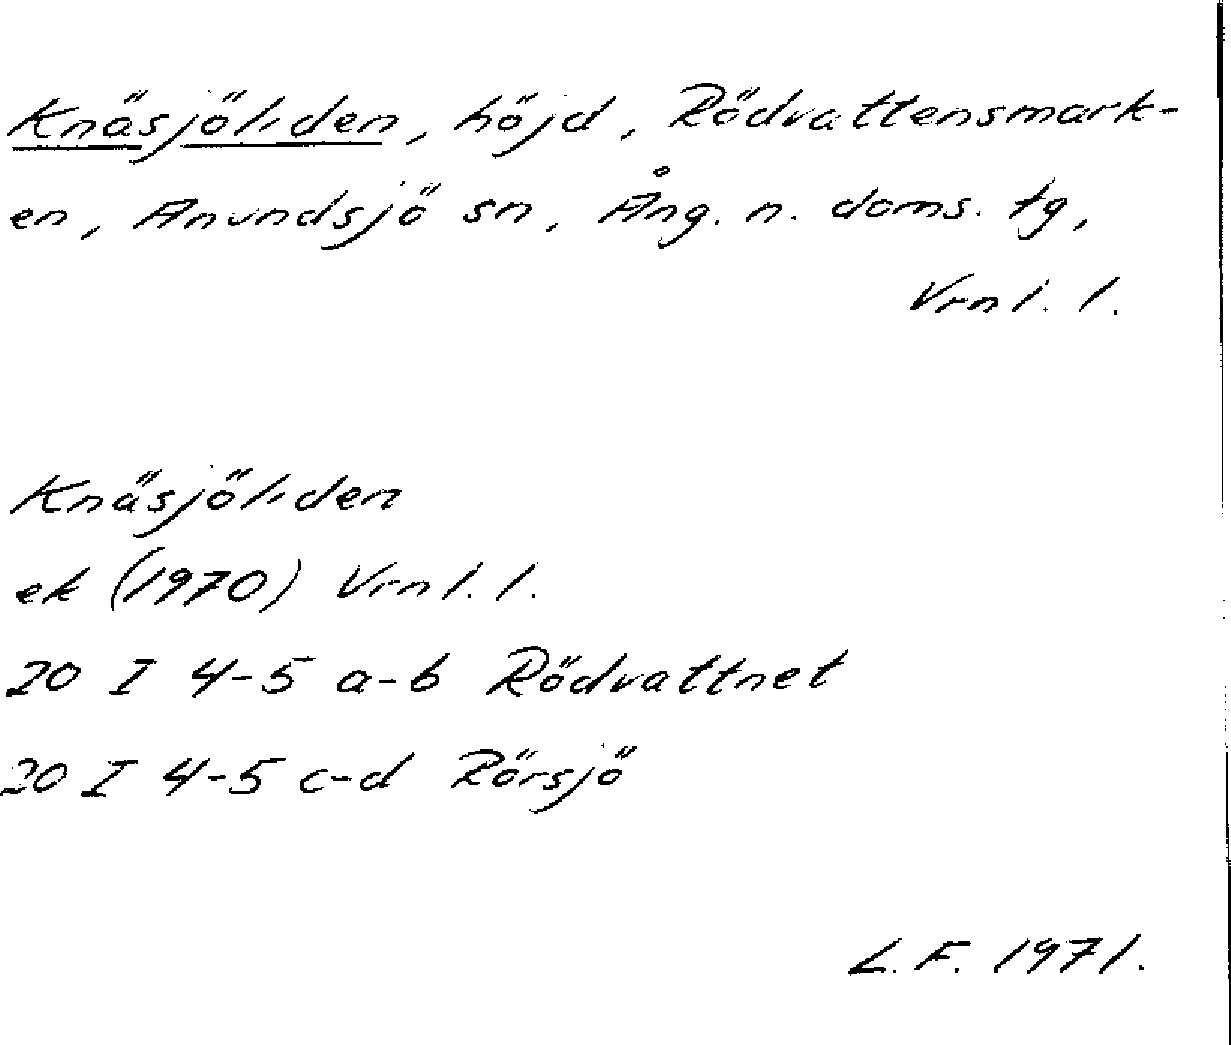 Knäsjöliden, höjd, Rödvattensmark-
en, Anundsjö sn, Ång. n. doms. tg,
Vrnl. l.
Knäsjöliden
ek (1970) Vrnl. l.
20 I 4-5 a-b Rödvattnet
20 I 4-5 c-d Rörsjö
L. F. 1971.